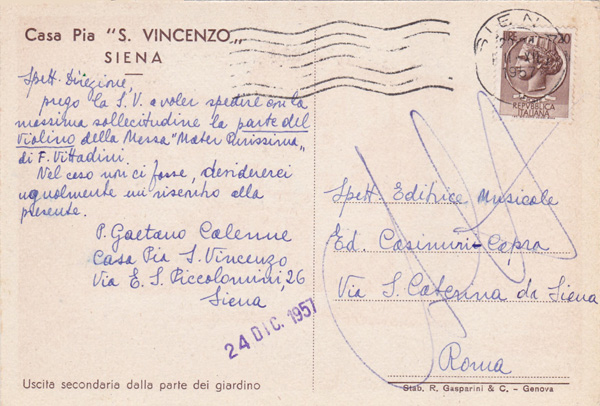 Casa Pia "S. VINCENZO„
SIENA
Spett. Direzione,
prego la S.V. a voler spedire con la
massima sollecitudine la parte del
Violino della Messa "Mater Purissima„
di F. Vittadini.
Nel caso non ci fosse, desidererei
ugualmente un riscontro alla
presente.
P. Gaetano Calenne
Casa Pia S. Vincenzo
Via E. S. Piccolomini, 26
Siena
24 DIC. 1957
Uscita secondaria dalla parte dei giardino
SIENA
20
REPVBBLICA
ITALIANA
Spett. Editrice Musicale
Ed. Casimiri-Capra
Via S. Caterina da Siena
Roma
Stab. R. Gasparini & C. - Genova